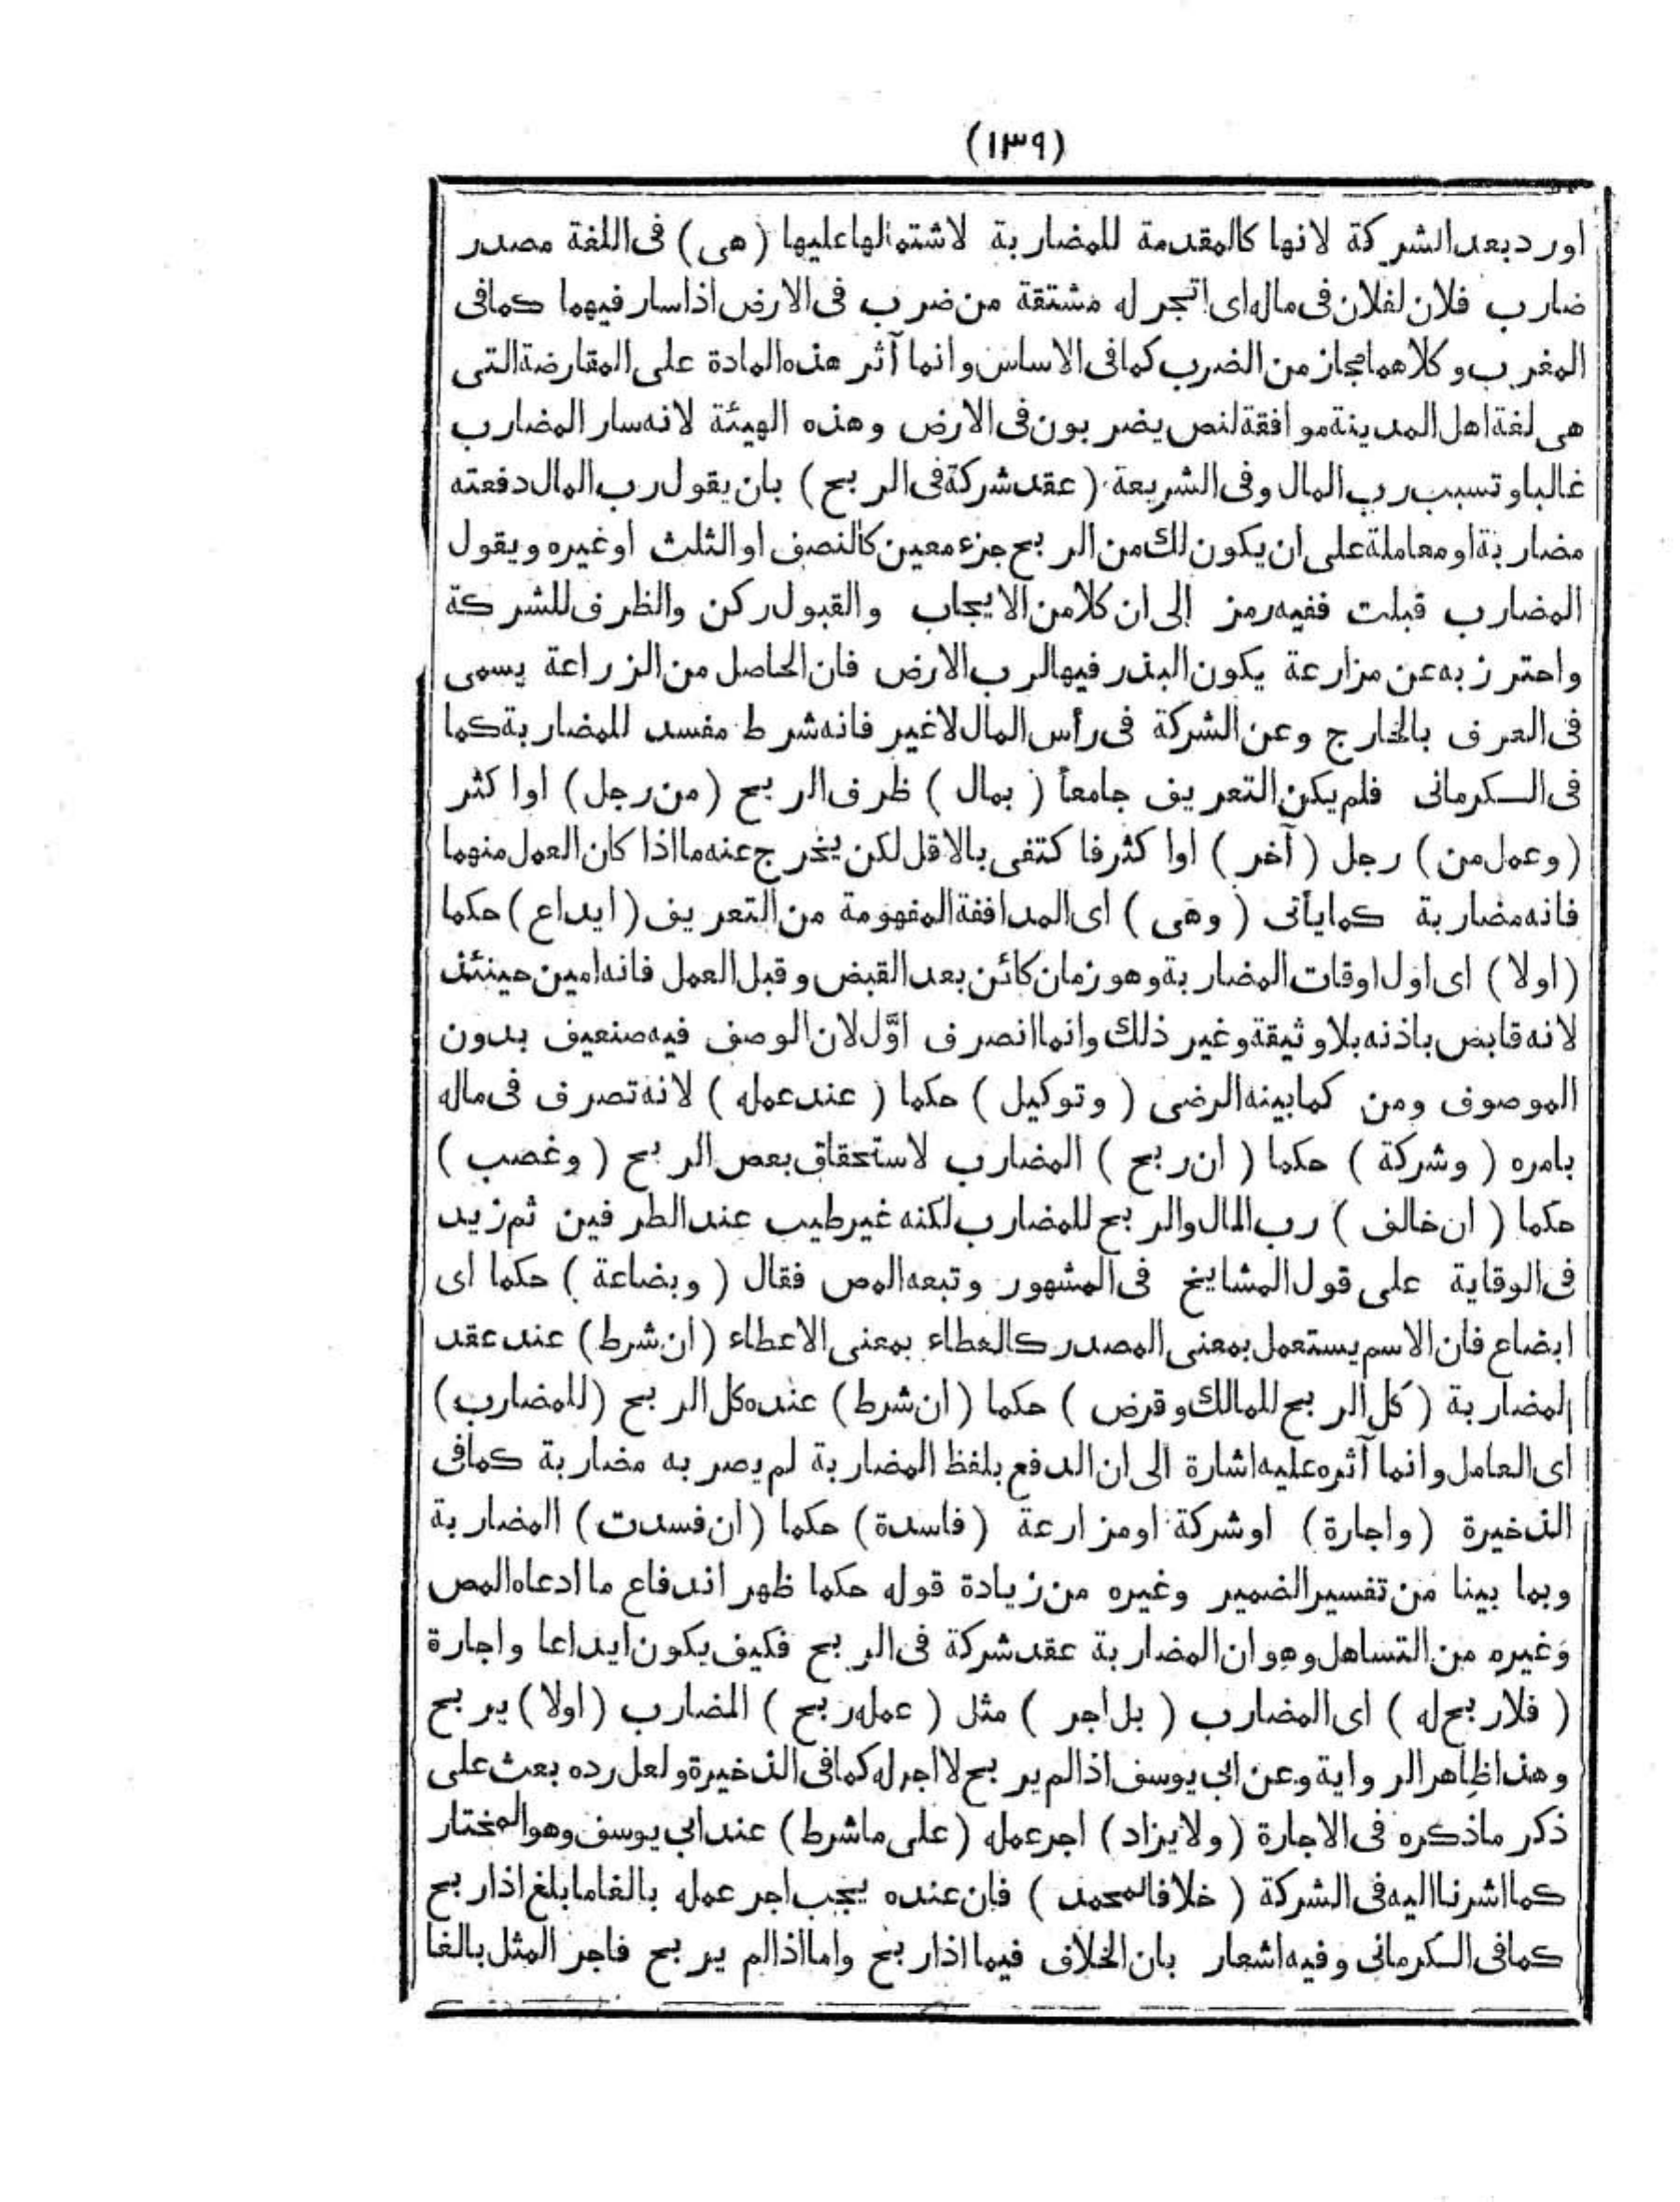 (١٣٩)
اورد بعد الشركة لانها كالمقدمة للمضاربة لاشتمالها عليها (هى) فى اللغة مصدر
ضارب فلان لفلان فى ماله اى اتجر له مشتقة من ضرب فى الارض اذا سار فيهما كما فى
المغرب وكلاهما مجاز من الضرب كما فى الاساس وانما آثر هذه المادة على المقارضة التى
هى لغة اهل المدينة موافقة لنص يضربون فى الارض وهذه الهيئة لانه سار المضارب
غالبا وتسبب رب المال وفى الشريعة (عقد شركة فى الربح) بان يقول رب المال دفعته
مضاربة او معاملة على ان يكون لك من الربح جزء معين كالنصف او الثلث اوغيره ويقول
المضارب قبلت ففيه رمز إلى ان كلا من الايجاب والقبول ركن والظرف للشركة
واحترز به عن مزارعة يكون البذر فيها لرب الارض فان الحاصل من الزراعة يسمى
فى العرف بالخارج وعن الشركة فى رأس المال لاغير فانه شرط مفسد للمضاربة كما
فى السكرمانى فلم يكن التعريف جامعاً (بمال) ظرف الربح (من رجل) او اكثر
(وعمل من) رجل (آخر) او اكثر فاكتفى بالاقل لكن يخرج عنه ما اذا كان العمل منهما
فانه مضاربة كما يأتى (وهى) اى المدافقة المفهومة من التعريف (ايداع) حكما
(اولا) اى اول اوقات المضاربة وهو زمان كائن بعد القبض وقبل العمل فانه امين حينئذ
لانه قابض باذنه بلا وثيقة وغير ذلك وانما انصرف اوّل لان الوصف فيه ضعيف بدون
الموصوف ومن كما بينه الرضى (وتوكيل) حكما (عند عمله) لانه تصرف فى ماله
بامره (وشركة) حكما (ان ربح) المضارب لاستحقاق بعض الربح (وغصب)
حكما (ان خالف) رب المال والربح للمضارب لكنه غير طيب عند الطرفين ثم زيد
فى الوقاية على قول المشايخ فى المشهور وتبعه المص فقال (وبضاعة) حكما اى
ابضاع فان الاسم يستعمل بمعنى المصدر كالعطاء بمعنى الاعطاء (ان شرط) عند عقد
المضاربة (كل الربح للمالك وقرض) حكما (ان شرط) عنده كل الربح (للمضارب)
اى العامل وانما آثره عليه اشارة الى ان الدفع بلفظ المضاربة لم يصر به مضاربة كما فى
الذخيرة (واجارة) او شركة او مزارعة (فاسدة) حكما (ان فسدت) المضاربة
وبما بينا من تفسير الضمير وغيره من زيادة قوله حكما ظهر اندفاع ما ادعاه المص
وغيره من التساهل وهو ان المضاربة عقد شركة فى الربح فكيف يكون ايداعا واجارة
(فلا ربح له) اى المضارب (بل اجر) مثل (عمله ربح) المضارب (اولا) يربح
وهذا ظاهر الرواية وعن ابى يوسف اذا لم يربح لا اجر له كما فى الذخيرة ولعل رده بعث على
ذكر ما ذكره فى الاجارة (ولا يزاد) اجر عمله (على ما شرط) عند ابى يوسف وهو المختار
كما اشرنا اليه فى الشركة (خلافا لمحمد) فان عنده يجب اجر عمله بالغا ما بلغ اذا ربح
كما فى السكرمانى وفيه اشعار بان الخلاف فيما اذا ربح واما اذا لم يربح فاجر المثل بالغا